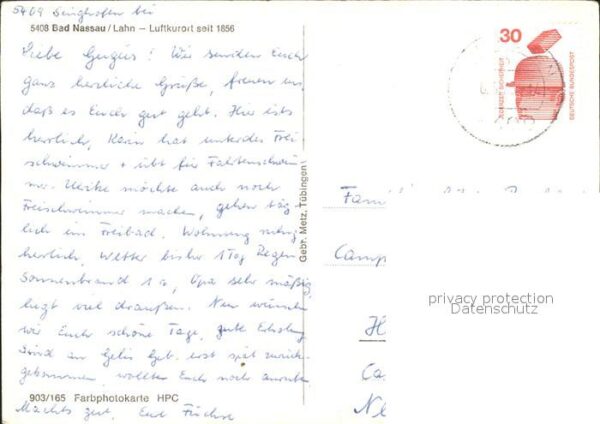 5409 Singhofen bei
5408 Bad Nassau / Lahn – Luftkurort seit 1856
Liebe Gengers! Wir senden Euch
ganz herzliche Grüße, freuen uns,
daß es Euch gut geht. Hier ists
herrlich, Karin hat unterdes Frei
schwimmer + übt für Fahrtenschwim
mer. Ulrike möchte auch noch
Freischwimmer machen, gehen täg
lich ins Freibad. Wohnung ruhig
herrlich, Wetter bisher 1 Tag Regen
Sonnenbrand 1a, Opa sehr mäßig,
liegt viel draußen. Nun wünschen
wir Euch schöne Tage, gute Erholung
Sind an Geb. erst spät zurück-
gekommen, wollten Euch noch anrufen
903/165 Farbphotokarte HPC
Machts gut, Eure Füchse
Gebr. Metz, Tübingen
30
JEDERZEIT SICHERHEIT
DEUTSCHE BUNDESPOST
Fam
Camp
H
Ca
privacy protection
Datenschutz